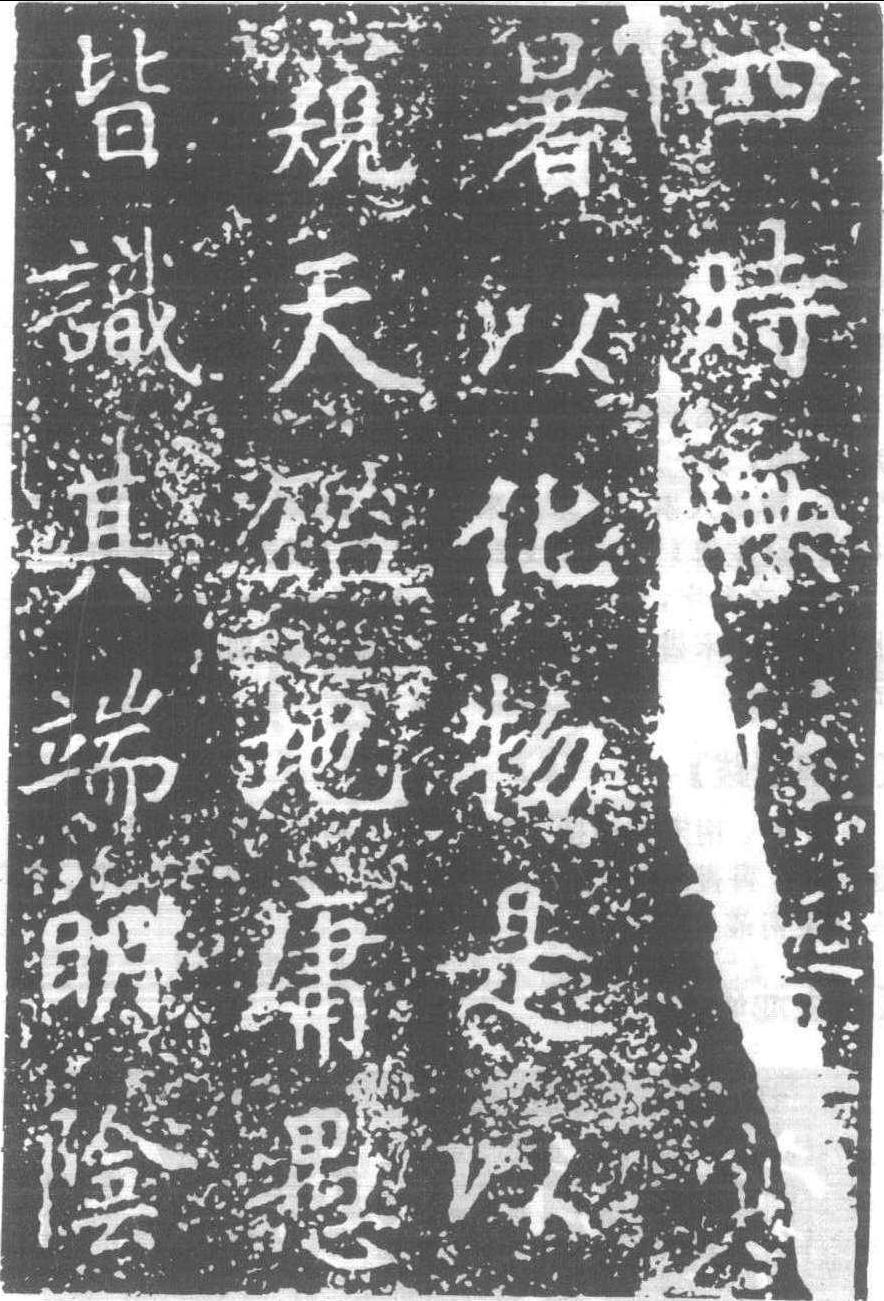 四時無
暑以化物是以
窺天鑑地庸愚
皆識其端眀陰